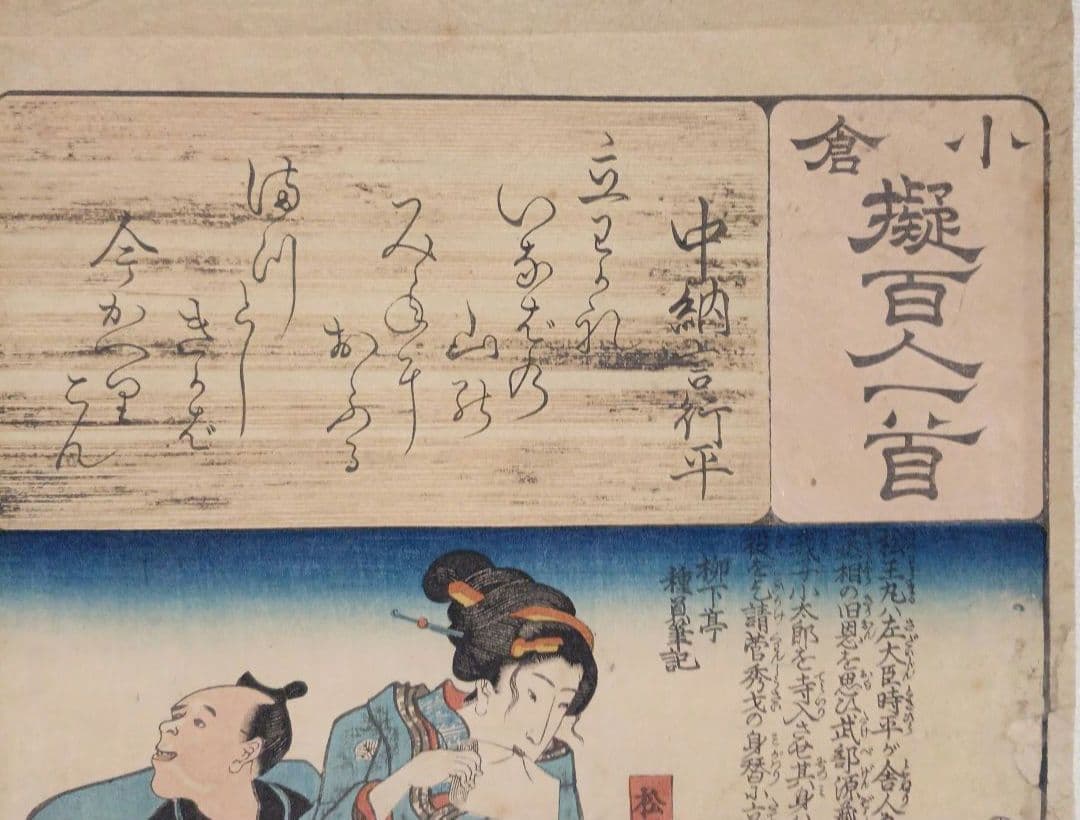 小倉
擬百人一首
中納言行平
立わかれ
いなばの
山の
みねに
おふる
まつとし
きかば
今かへり
こん
松王丸ハ左大臣時平が舎人
丞相の旧恩を思ひ武部源蔵
我子小太郎を寺入させ其身
役を乞請菅秀才の身替に立
柳下亭
種員筆記
松